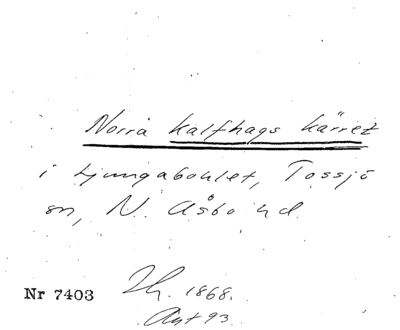 Norra Kalfhags kärret
i Ljungabohlet, Tossjö
sn, N. Åsbo hd
Nr 7403 Th. 1868.
Avt 93